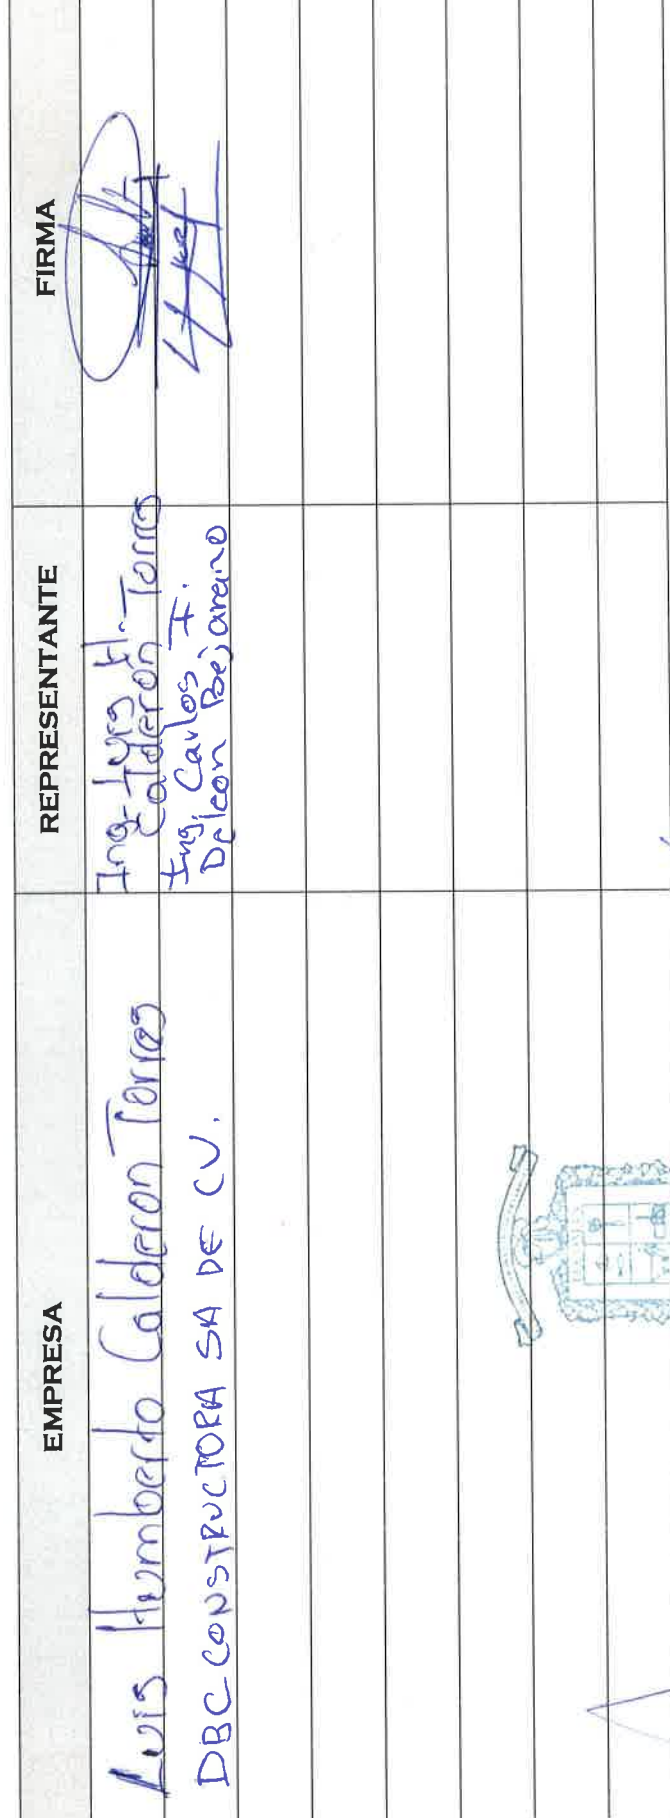 EMPRESA REPRESENTANTE FIRMA
Luis Humberto Calderon Torres Ing. Luis H.
Calderon Torres
DBC CONSTRUCTORA SA DE CV. Ing. Carlos F.
Deleon Bejarano